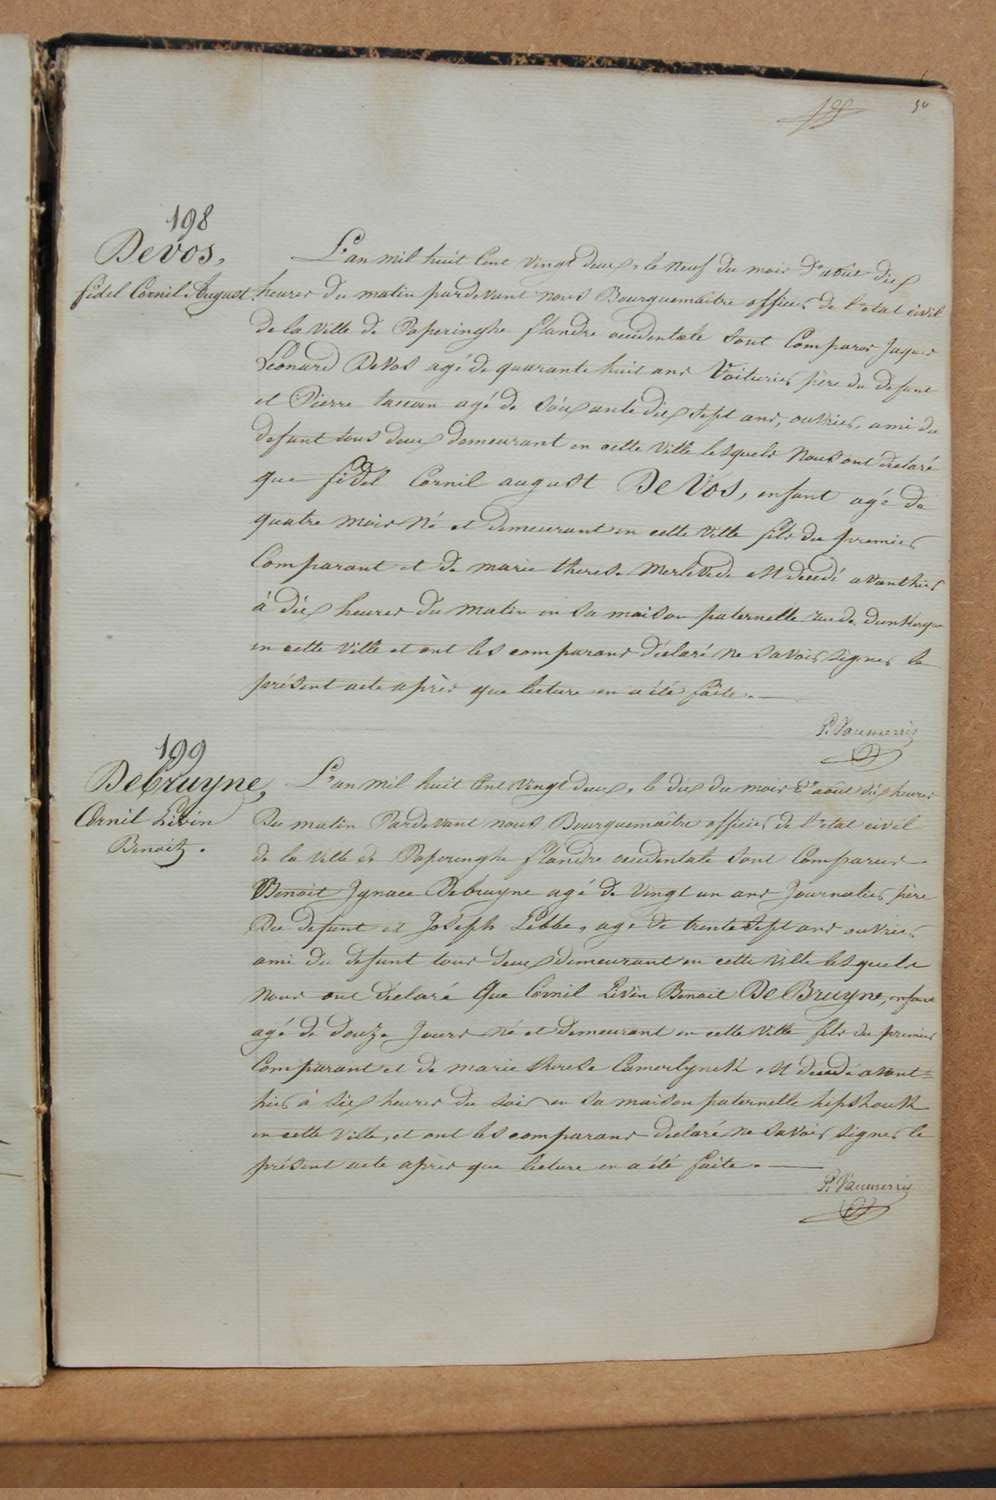 50
198
Devos,
fidel Cornil August
L'an mil huit Cent vingt deux, le neuf du mois d'août dix
heures du matin pardevant nous Bourguemaitre officier de l'etat civil
de la ville de Poperinghe flandre occidentale sont Comparus Jaques
Léonard Devos agé de quarante huit ans Voiturier père du defunt
et Pierre agé de soixante dix sept ans, ouvrier, ami du
defunt tous deux demeurant en cette ville lesquels nous ont déclaré
que fidel Cornil august De Vos, enfant agé de
quatre mois né et demeurant en cette ville fils du premier
Comparant et de marie therese Merlevede est decedé avanthier
à dix heures du matin en sa maison paternelle rue de dunkerque
en cette ville et ont les comparans déclaré ne savoir signer le
présent acte après que lecture en a été faite.
P. Vanmerris
199
Debruyne,
Cornil Livin
Benoit.
L'an mil huit Cent vingt deux, le dix du mois d'août dix heures
du matin Pardevant nous Bourguemaitre officier de l'etat civil
de la ville de Poperinghe flandre occidentale sont Comparus
Benoit Ignace Debruyne agé de vingt un ans Journalier père
du defunt et Joseph Lebbe, agé de trente sept ans ouvrier
ami du defunt tous deux demeurant en cette ville lesquels
nous ont déclaré que Cornil Livin Benoit De Bruyne, enfant
agé de douze Jours né et demeurant en cette ville fils du premier
Comparant et de marie therese Camerlynck est decedé avant=
hier à six heures du soir en sa maison paternelle hipshouck
en cette ville, et ont les comparans declaré ne savoir signer le
présent acte après que lecture en a été faite.
P. Vanmerris